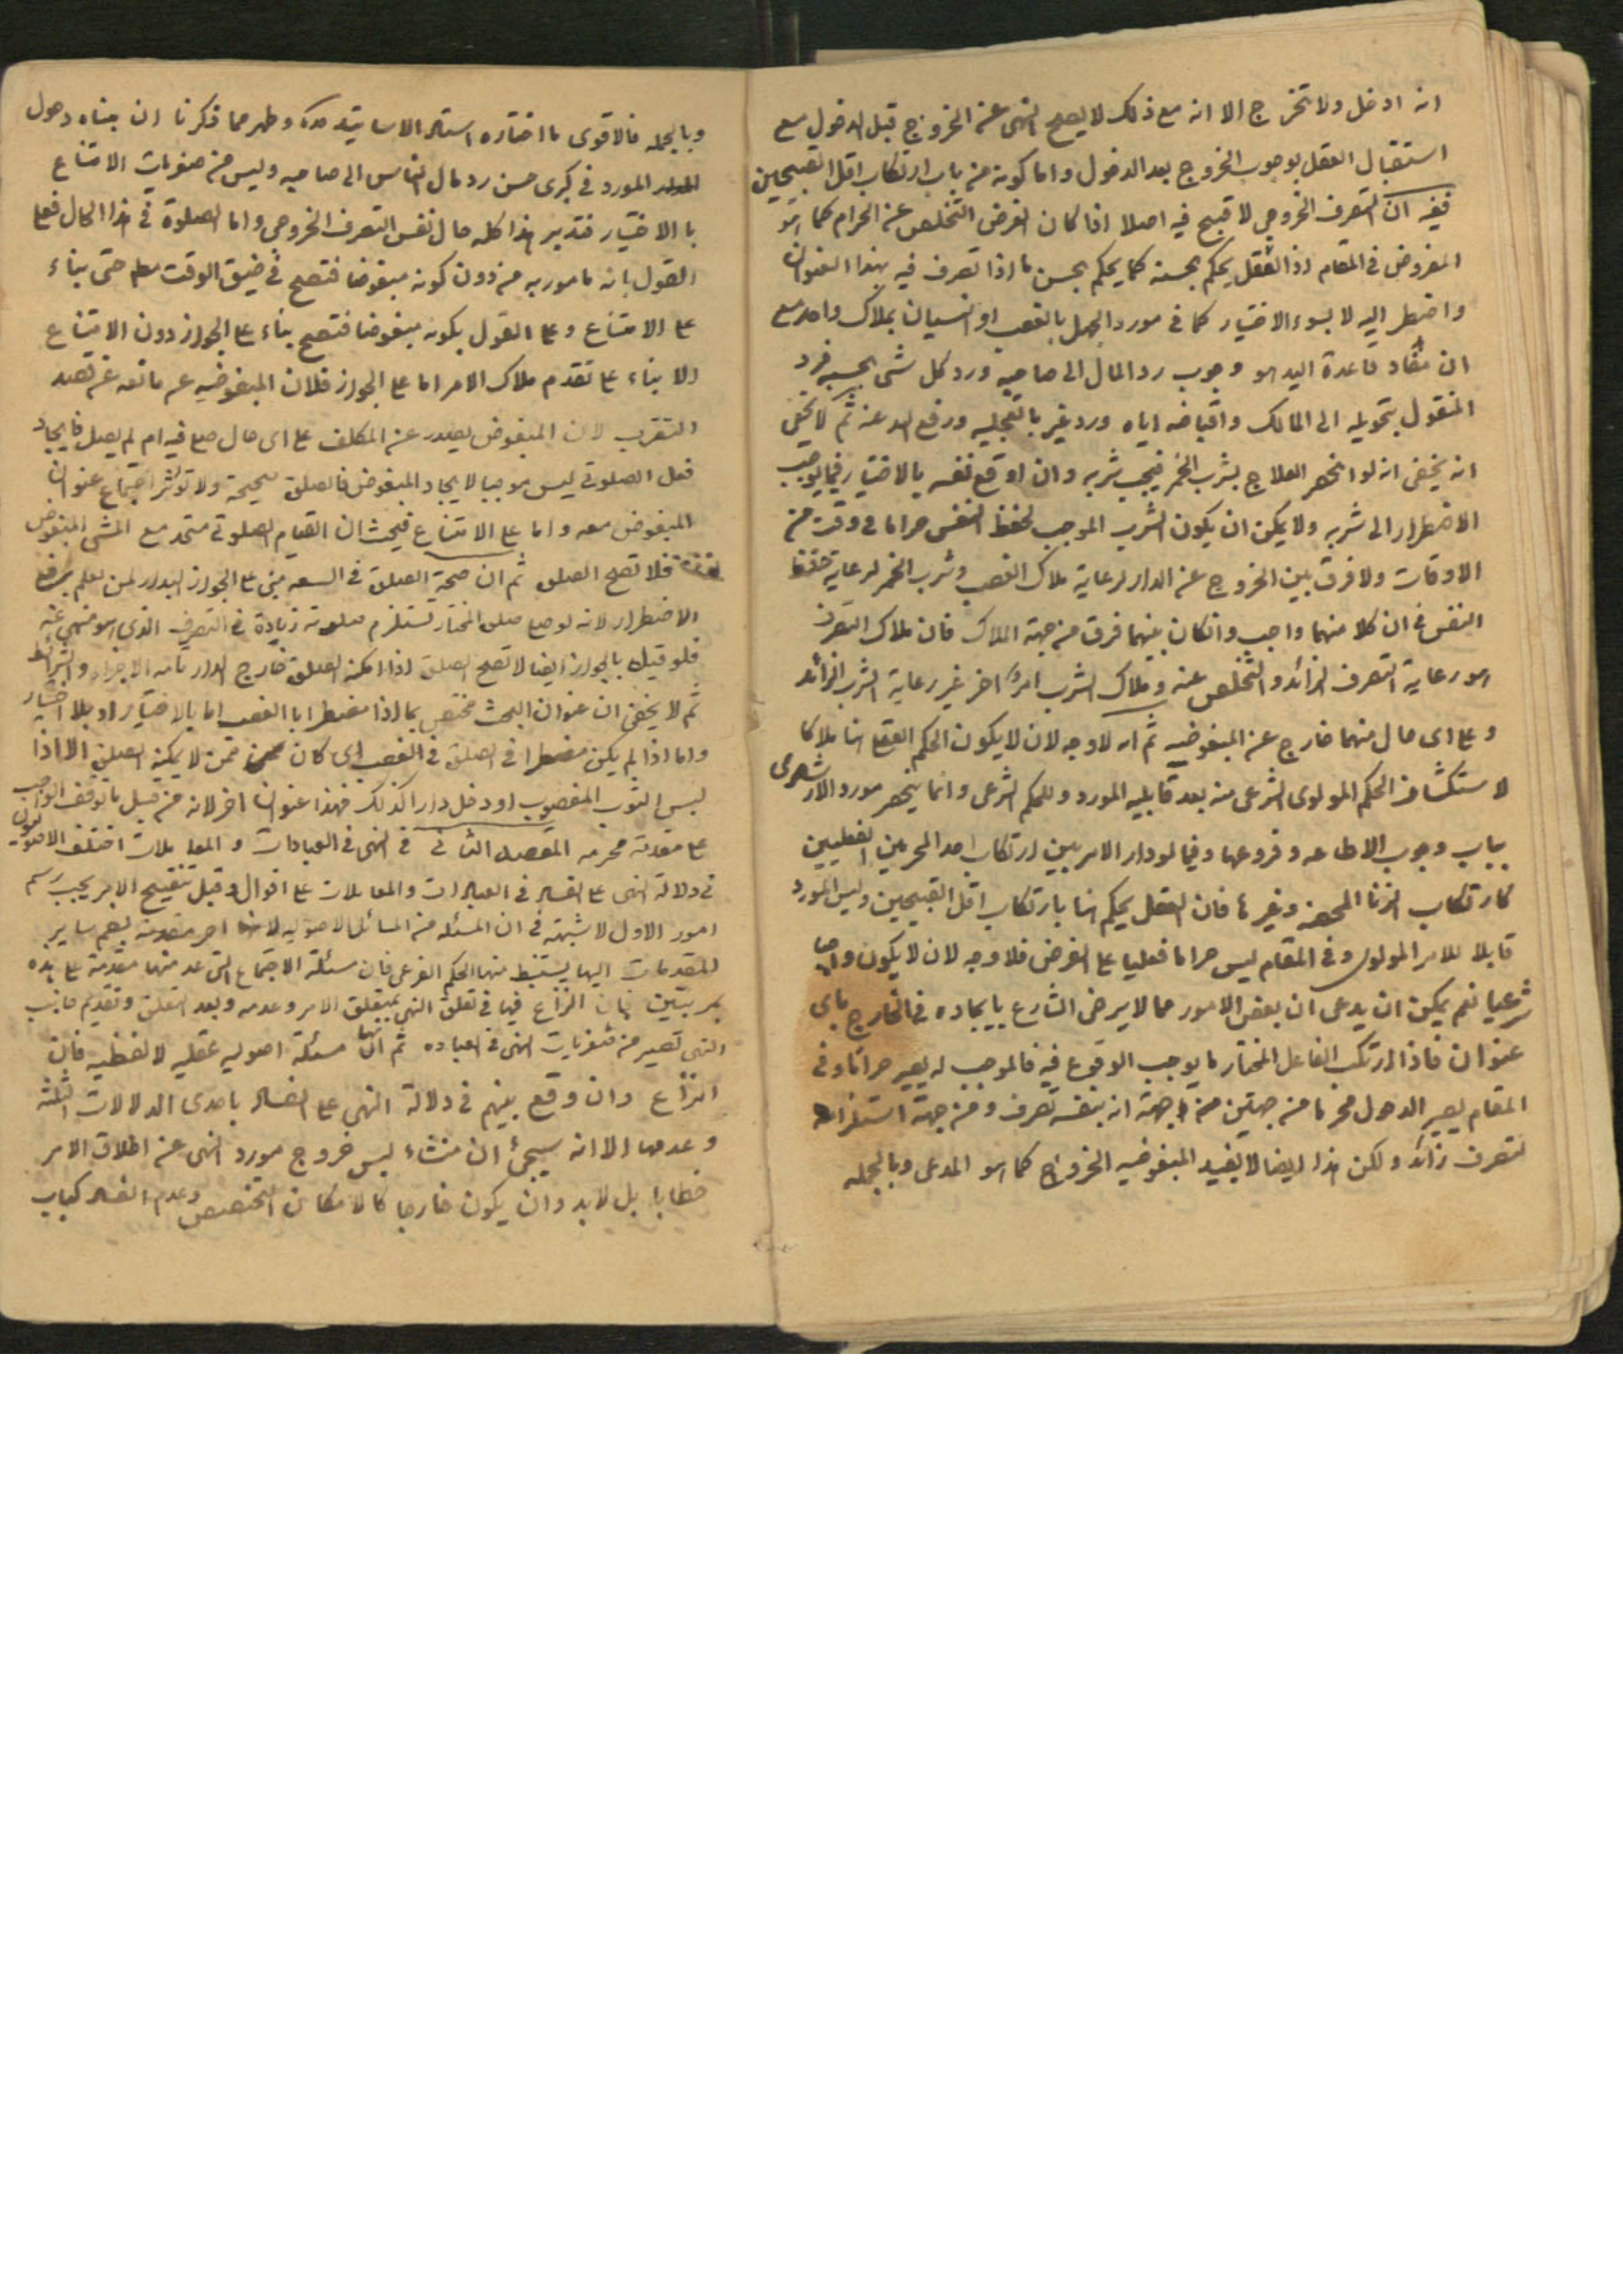 انه ادخل ولا تخرج الا انه مع ذلك لا يصح النهى عن الخروج قبل الدخول مع
استقبال العقل بوجوب الخروج بعد الدخول واما كونه من باب ارتكاب اقل القبيحين
ففيه ان التصرف الخروجى لا قبح فيه اصلا اذا كان الغرض التخلص عن الحرام كما هو
المفروض فى المقام اذ العقل يحكم بحسنه كما يحكم بحسن ما اذا تصرف فيه بهذا العنوان
واضطر اليه لا بسوء الاختيار كما فى مورد الجهل بالغصب او النسيان بملاك واحد مع
ان مفاد قاعدة اليد هو وجوب رد المال الى صاحبه ورد كل شئ بحسبه فرد
المنقول بتحويله الى المالك واقباضه اياه ورد غيره بالتخليه ورفع اليد عنه ثم لا يخفى
انه يخفى انه لو انحصر العلاج بشرب الخمر فيجب شربه وان اوقع نفسه بالاختيار فيما يوجب
الاضطرار الى شربه ولا يمكن ان يكون الشرب الموجب لحفظ النفس حراما فى وقت من
الاوقات ولا فرق بين الخروج عن الدار لرعاية ملاك الغصب وشرب الخمر لرعاية حفظ
النفس فى ان كلا منهما واجب وانكان بينهما فرق من جهة الملاك فان ملاك التصرف
هو رعاية التصرف الزائد والتخلص عنه وملاك الشرب امر اخر غير رعاية الشرب الزائد
و على اى حال منهما خارج عن المبغوضيه ثم انه لا وجه لان لا يكون الحكم العقلى هنا ملاكا
لاستكشاف الحكم المولوى الشرعى منه بعد قابليه المورد وللحكم الشرعى وانما ينحصر مورد الارشادى
بباب وجوب الاطاعه وفروعها وفيما لو دار الامر بين ارتكاب احد المحرمين الفعليين
كارتكاب الزنا المحصنه وغيرها فان العقل يحكم هنا بارتكاب اقل القبيحين وليس المورد
قابلا للامر المولوى وفى المقام ليس حراما فعليا على الفرض فلا وجه لان لا يكون واجبا
شرعيا نعم يمكن ان يدعى ان بعض الامور مما لا يرضى الشارع بايجاده فى الخارج باى
عنوان فاذا ارتكب الفاعل المختار ما يوجب الوقوع فيه فالموجب له يصير حراما وفى
المقام يصير الدخول محرما من جهتين من جهة انه بنفسه تصرف ومن جهة استلزامه
لتصرف زائد ولكن هذا ايضا لا يفيد المبغوضيه الخروج كما هو المدعى وبالجمله
وبالجمله فالاقوى ما اختاره استاد الاساتيد وظهر مما ذكرنا ان بناه دخول
المورد فى كبرى حسن رد مال الناس الى صاحبه وليس من صغريات الامتناع
بالاختيار فتدبر هذا كله حال نفس التصرف الخروجى واما الصلوة فى هذا الحال فعلى
القول بانه مامور به من دون كونه مبغوضا فتصح فى ضيق الوقت حتى بناء
على الامتناع وعلى القول بكونه مبغوضا فتصح بناء على الجواز دون الامتناع
الا بناء على تقدم ملاك الامر اما على الجواز فلان المبغوضيه غير مانعه عن قصد
التقرب لان المبغوض يصدر عن المكلف على اى حال صلى فيه ام لم يصل فايجاد
فعل الصلوتى ليس موجبا لايجاد المبغوض فالصلوة صحيحة ولا تؤثر اجتماع عنوان
المبغوض معه واما على الامتناع فحيث ان القيام الصلوتى متحد مع المشى المبغوض
فلا تصح الصلوة ثم ان صحة الصلوة فى السعه مبنى على الجواز البدار لمن يعلم برفع
الاضطرار لانه لوضع صلوة المختار تستلزم صلوته زيادة فى التصرف الذى هو منهى عنه
فلو قيل بالجواز ايضا لا تصح الصلوة اذا امكنه الصلوة خارج الدار تامه الاجزاء والشرائط
ثم لا يخفى ان عنوان البحث مختص بما اذا مضطرا بالغصب اما بالاختيار او بلا اختيار
واما اذا لم يكن مضطرا فى الصلوة فى الغصب اى كان ممن لا يمكنه الصلوة الا اذا
لبس الثوب المغصوب او دخل دارا كذلك فهذا عنوان اخر لانه من قبيل ما توقف الواجب
على مقدمة محرمه المقصد الثانى فى النهى فى العبادات و المعاملات اختلف الاصوليون
فى دلالة النهى على الفساد فى العبادات والمعاملات على اقوال وقبل تنقيح الامر يجب رسم
امور الاول لا شبهة فى ان المسئله من المسائل الاصوليه لانها احد مقدمة بضم ساير
المقدمات اليها يستنبط منها الحكم الفرعى فان مسئلة الاجتماع التى عد منها مقدمة على هذه
بمرتبتين فان النزاع فيها فى تعلق النهى بمتعلق الامر وعدمه وبعد التعلق وتقديم جانب
النهى تصير من صغريات النهى فى العباده ثم انها مسئلة اصوليه عقليه لا لفظيه فان
النزاع وان وقع بينهم فى دلالة النهى على الفساد باحدى الدلالات الثلثه
وعدمها الا انه سيجئ ان منشاء ليس خروج مورد النهى عن اطلاق الامر
خطابا بل لابد وان يكون خارجا كالامكان التخصيص وعدم الفساد كباب